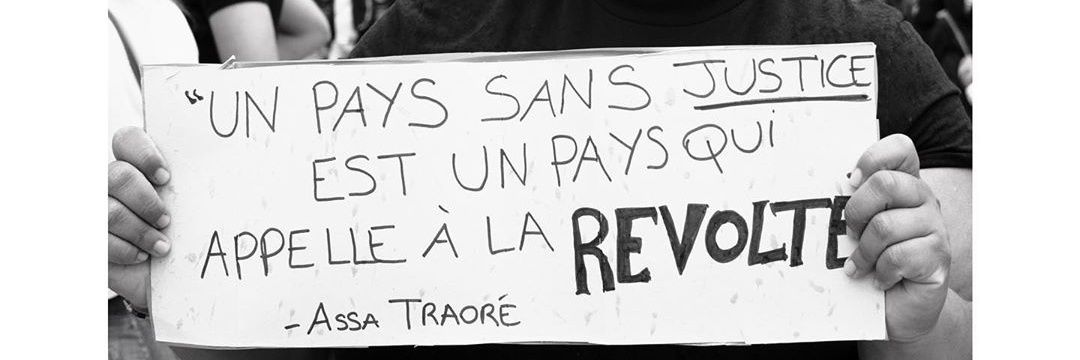 “UN PAYS SANS JUSTICE
EST UN PAYS QUI
APPELLE À LA REVOLTE
- ASSA TRAORÉ